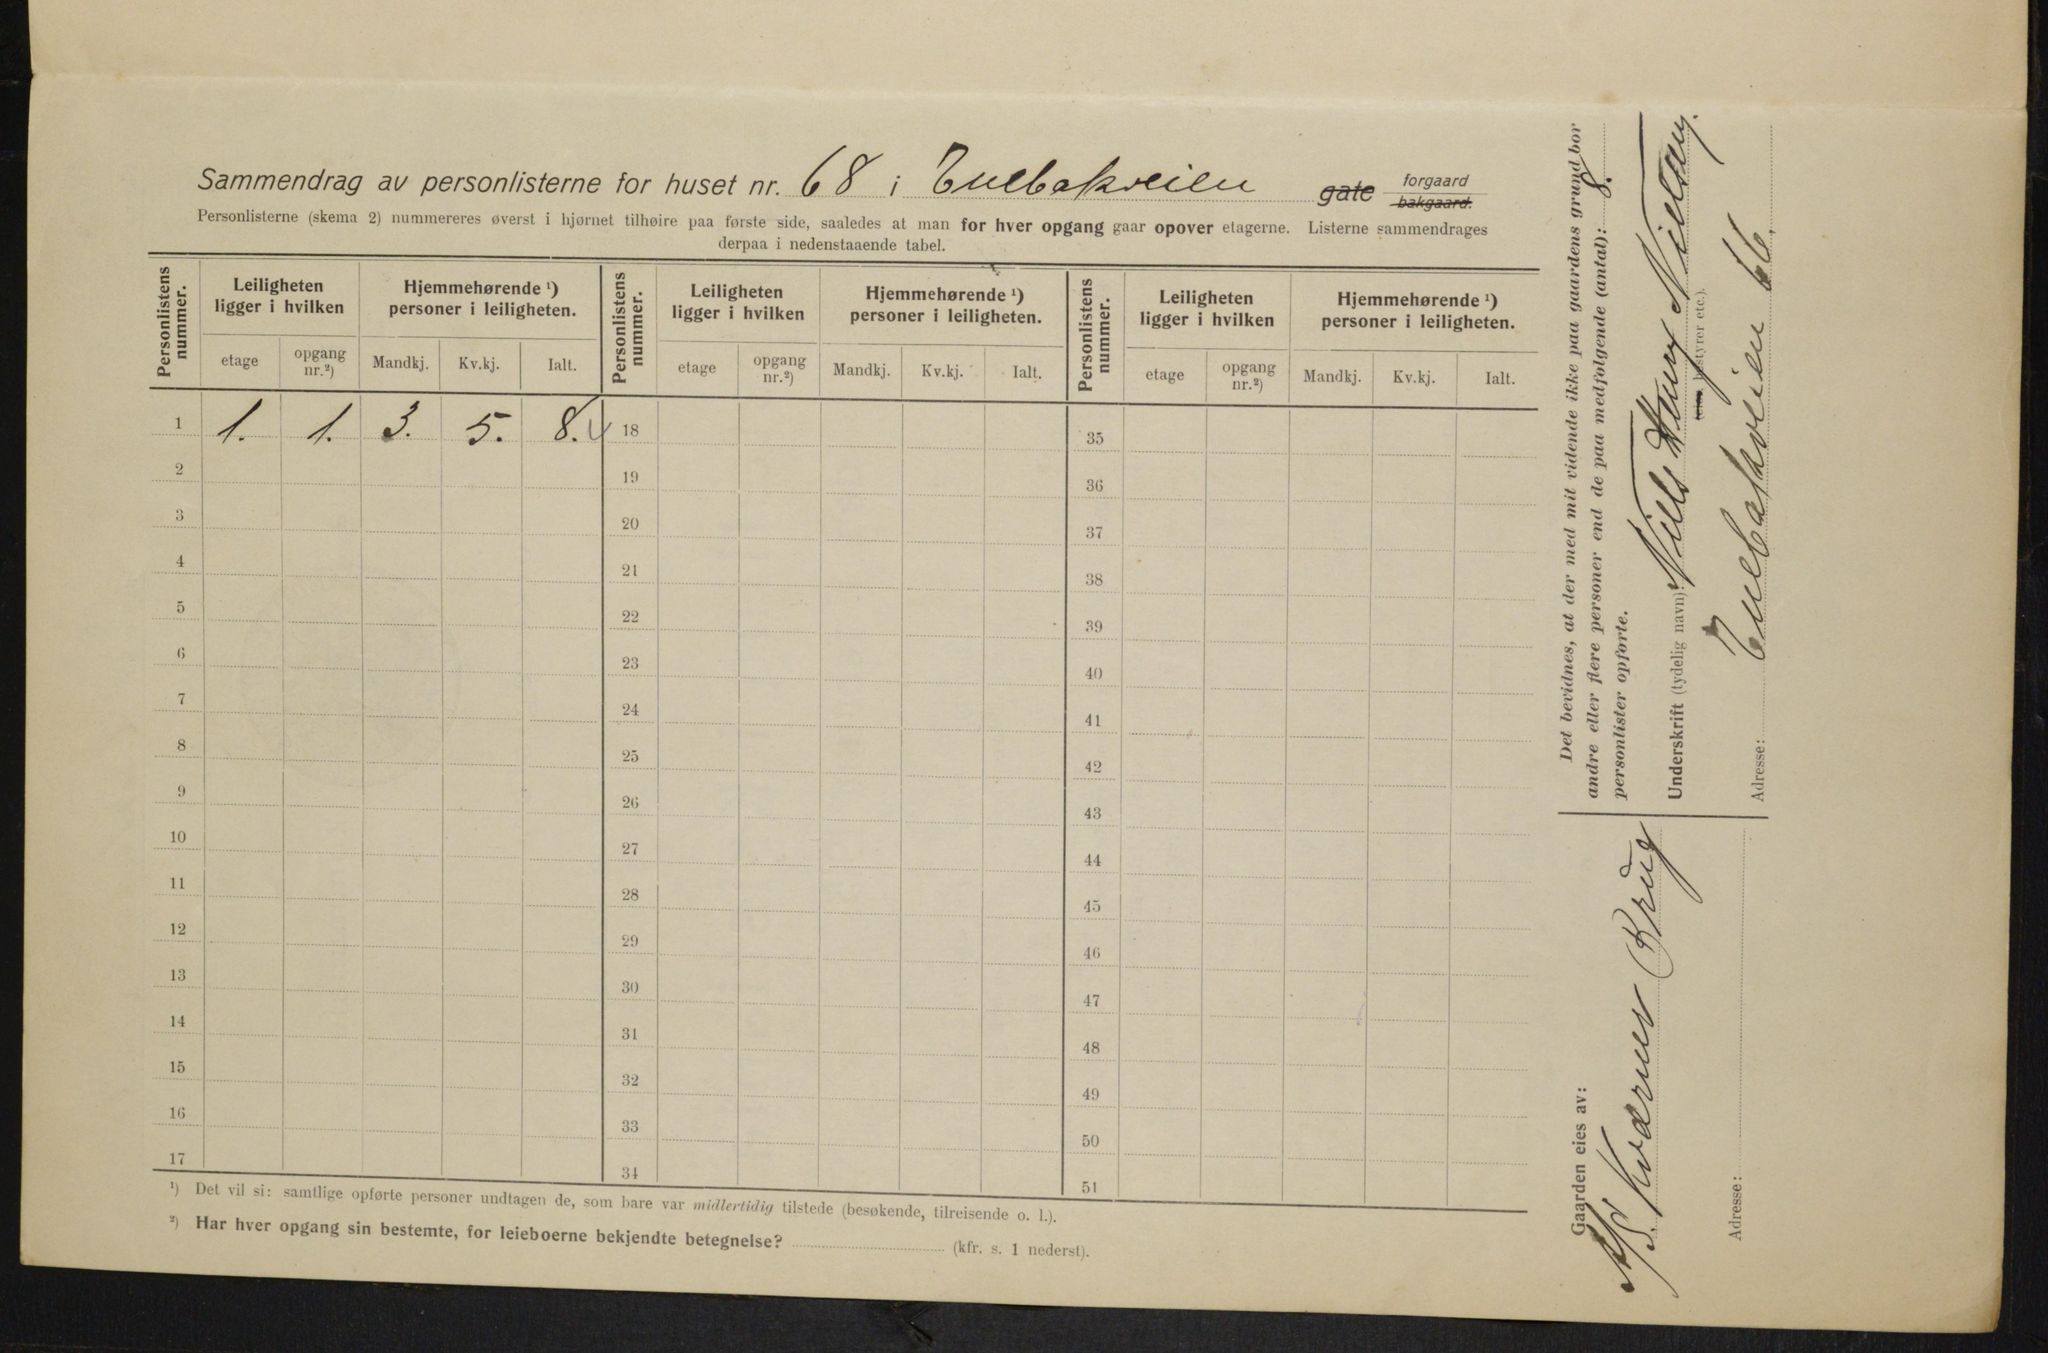 Sammendrag av personlisterne for huset nr. 68 i Enebakveien gate forgaard
bakgaard.
Personlisterne (skema 2) nummereres øverst i hjørnet tilhøire paa første side, saaledes at man for hver opgang gaar opover etagerne. Listerne sammendrages
derpaa i nedenstaaende tabel.
Personlistens nummer. Leiligheten ligger i hvilken Hjemmehørende ¹) personer i leiligheten. Personlistens nummer. Leiligheten ligger i hvilken Hjemmehørende ¹) personer i leiligheten. Personlistens nummer. Leiligheten ligger i hvilken Hjemmehørende ¹) personer i leiligheten.
etage opgang nr.²) Mandkj. Kv.kj. Ialt. etage opgang nr.²) Mandkj. Kv.kj. Ialt. etage opgang nr.²) Mandkj. Kv.kj. Ialt.
1 1. 1. 3. 5. 8. 18 35
2 19 36
3 20 37
4 21 38
5 22 39
6 23 40
7 24 41
8 25 42
9 26 43
10 27 44
11 28 45
12 29 46
13 30 47
14 31 48
15 32 49
16 33 50
17 34 51
¹) Det vil si: samtlige opførte personer undtagen de, som bare var midlertidig tilstede (besøkende, tilreisende o. l.).
²) Har hver opgang sin bestemte, for leieboerne bekjendte betegnelse? (kfr. s. 1 nederst).
Det bevidnes, at der med mit vidende ikke paa gaardens grund bor
andre eller flere personer end de paa medfølgende (antal): 8.
personlister opførte.
Underskrift (tydelig navn): Nills Henry Nilsen
bestyrer etc.).
Adresse: Enebakveien 66.
Gaarden eies av:
A/S. Kværner Brug
Adresse: